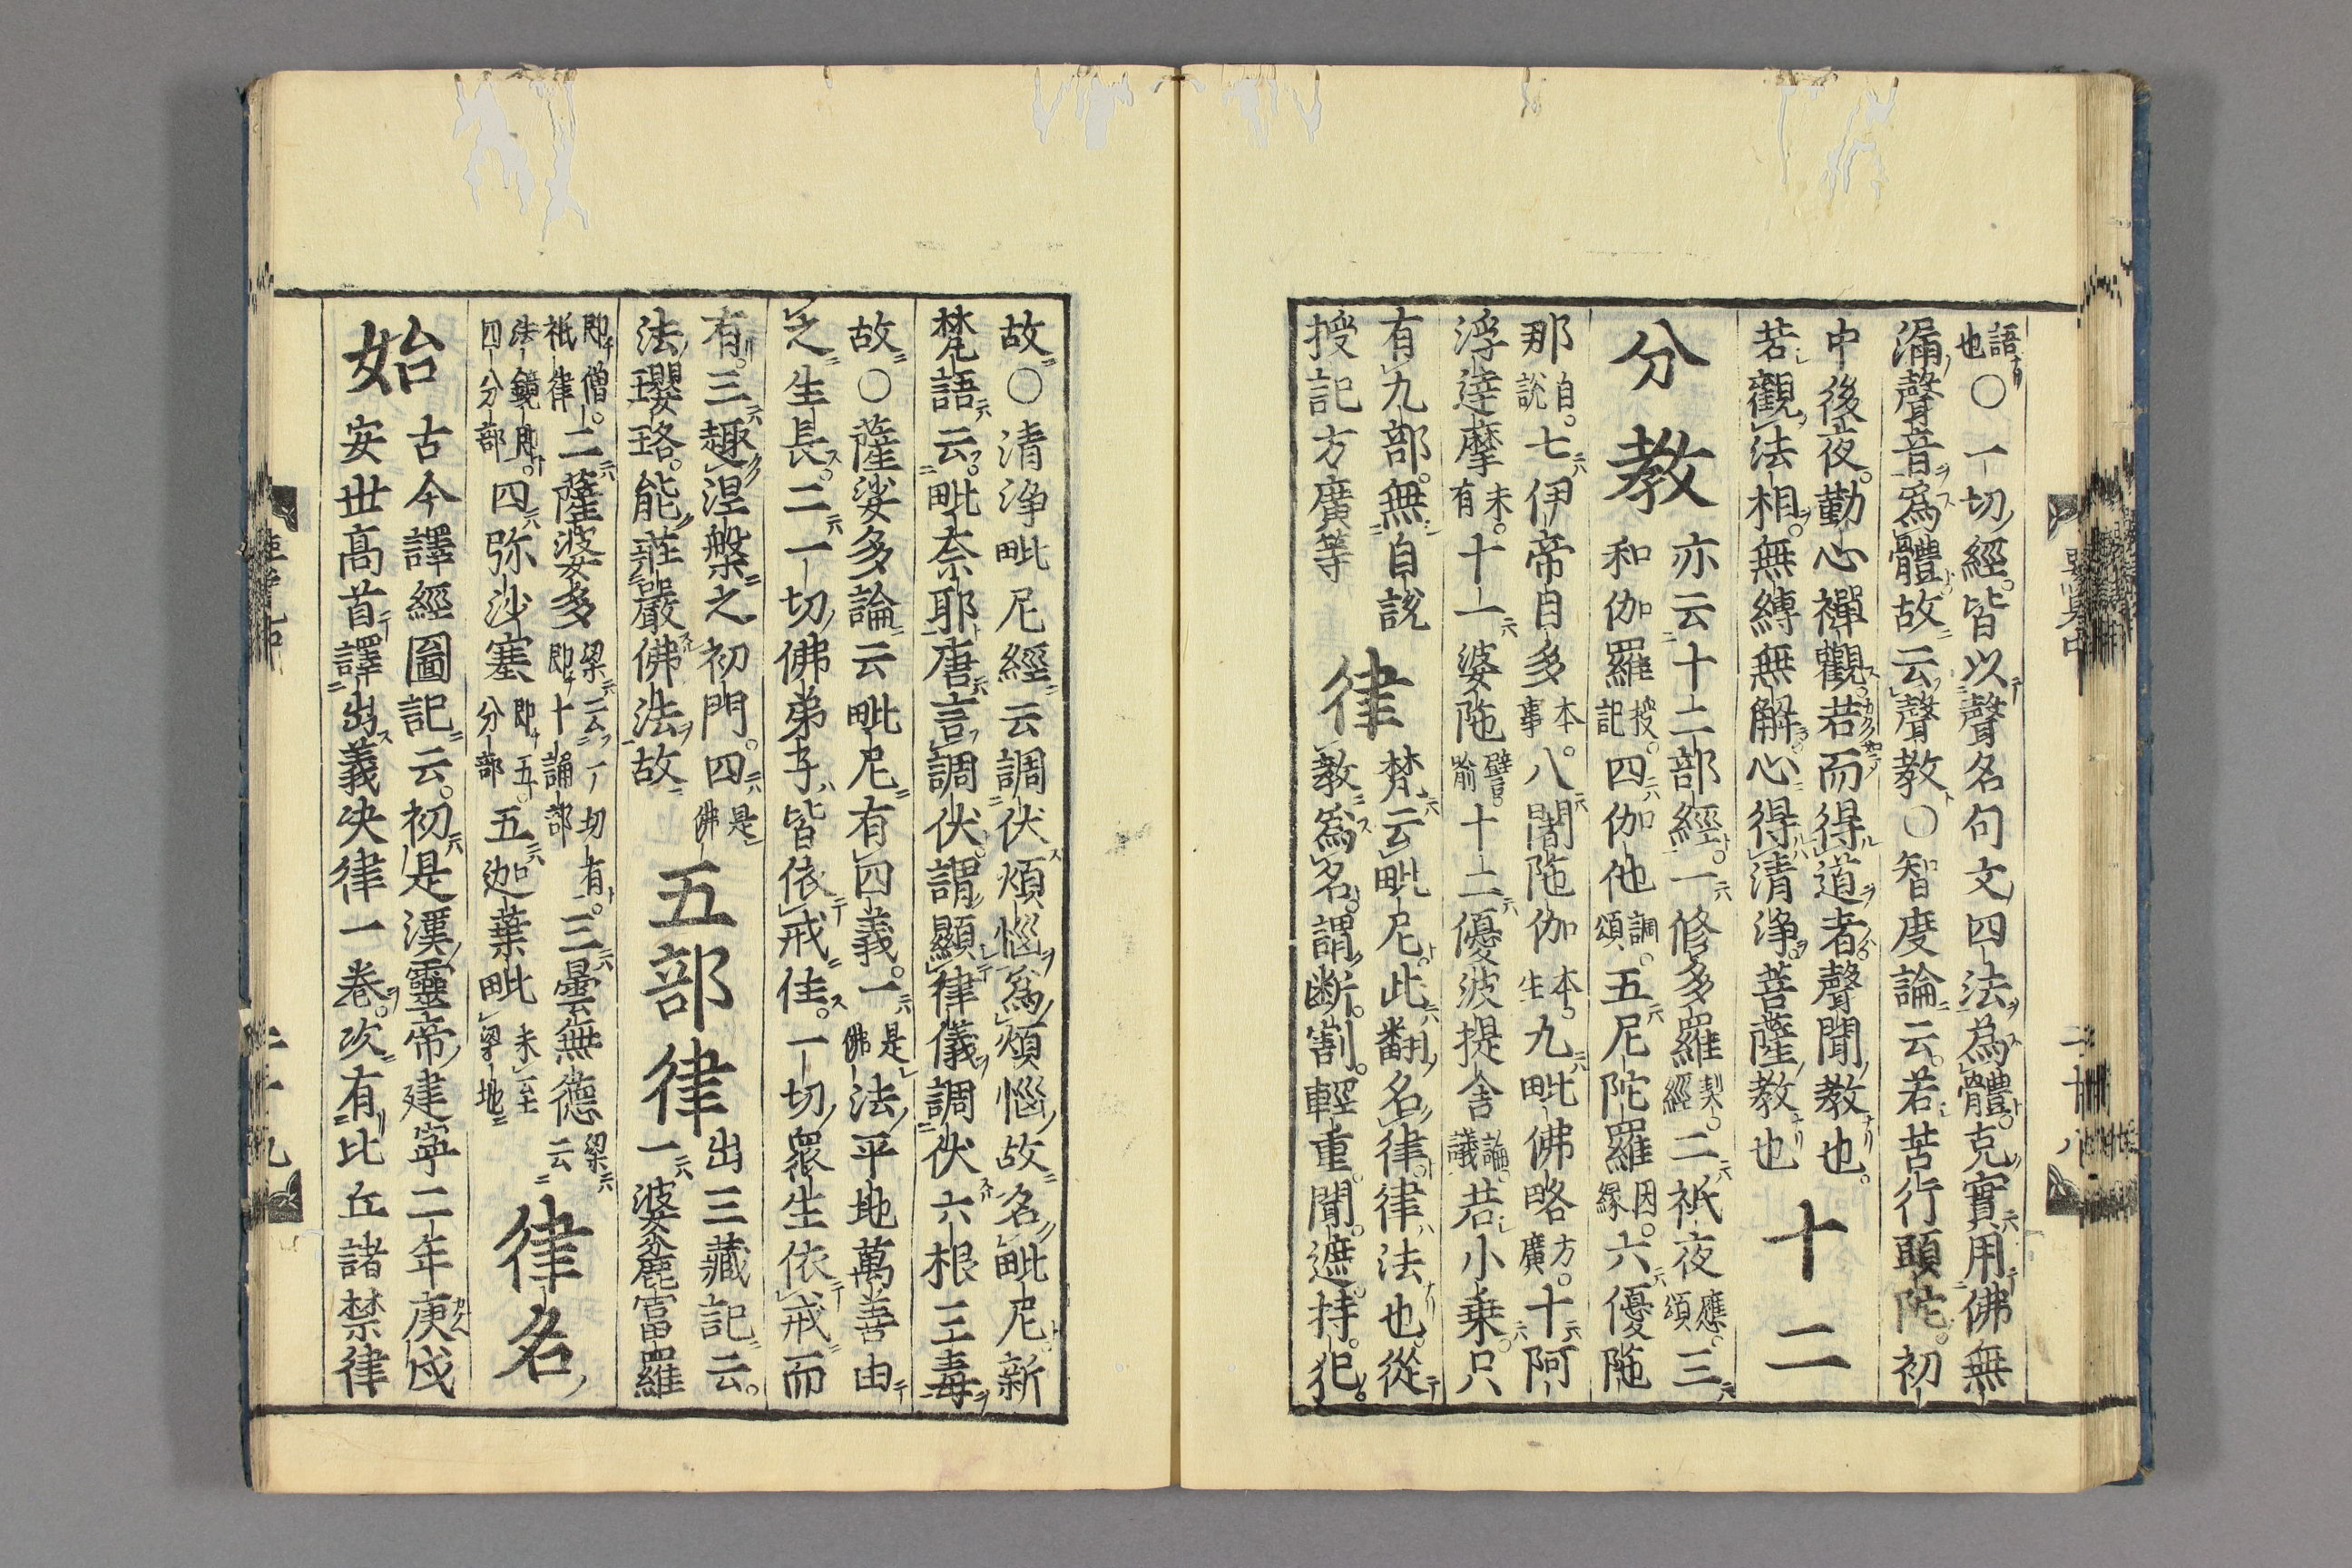 語也〇一切經皆以聲名句文四法為體克實用佛無
漏聲音爲體故云聲教〇智度論云若苦行頭陀初
中後夜勤心禪觀若而得道者聲聞教也
若觀法相無縛無解心得清淨菩薩教也
十二
分教
亦云十二部經一修多羅契經二祇夜應頌三
和伽羅授記四伽他調頌五尼陀羅因縁六優陁
那自說七伊帝目多本事八闍陁伽本生九毗佛略方廣十阿
浮達摩未有十一婆陁譬喻十二優波提舍論議若小乗只
有九部無自說
授記方廣等
律
梵云毗尼此翻名律律法也從
教爲名謂断割輕重開遮持犯
故〇清浄毗尼經云調伏煩惱爲煩惱故名毗尼新
梵語云毗奈耶唐言調伏謂顯律儀調伏六根三毒
故〇薩娑多論云毗尼有四義一是佛法平地萬善由
之生長二一切佛弟子皆依戒住一切衆生依戒而
有三趣涅槃之初門四是佛
法瓔珞能莊嚴佛法故
五部律
出三藏記云
一婆麁富羅
即僧祇律二薩婆多梁云一切有即十誦部三曇無德梁云
法鏡即四分部四弥沙塞即五分部五迦葉毗未至梁地
律名
始
古今譯經圖記云初是漢靈帝建寧二年庚戌
安世高首譯出義決律一卷次有比丘諸禁律